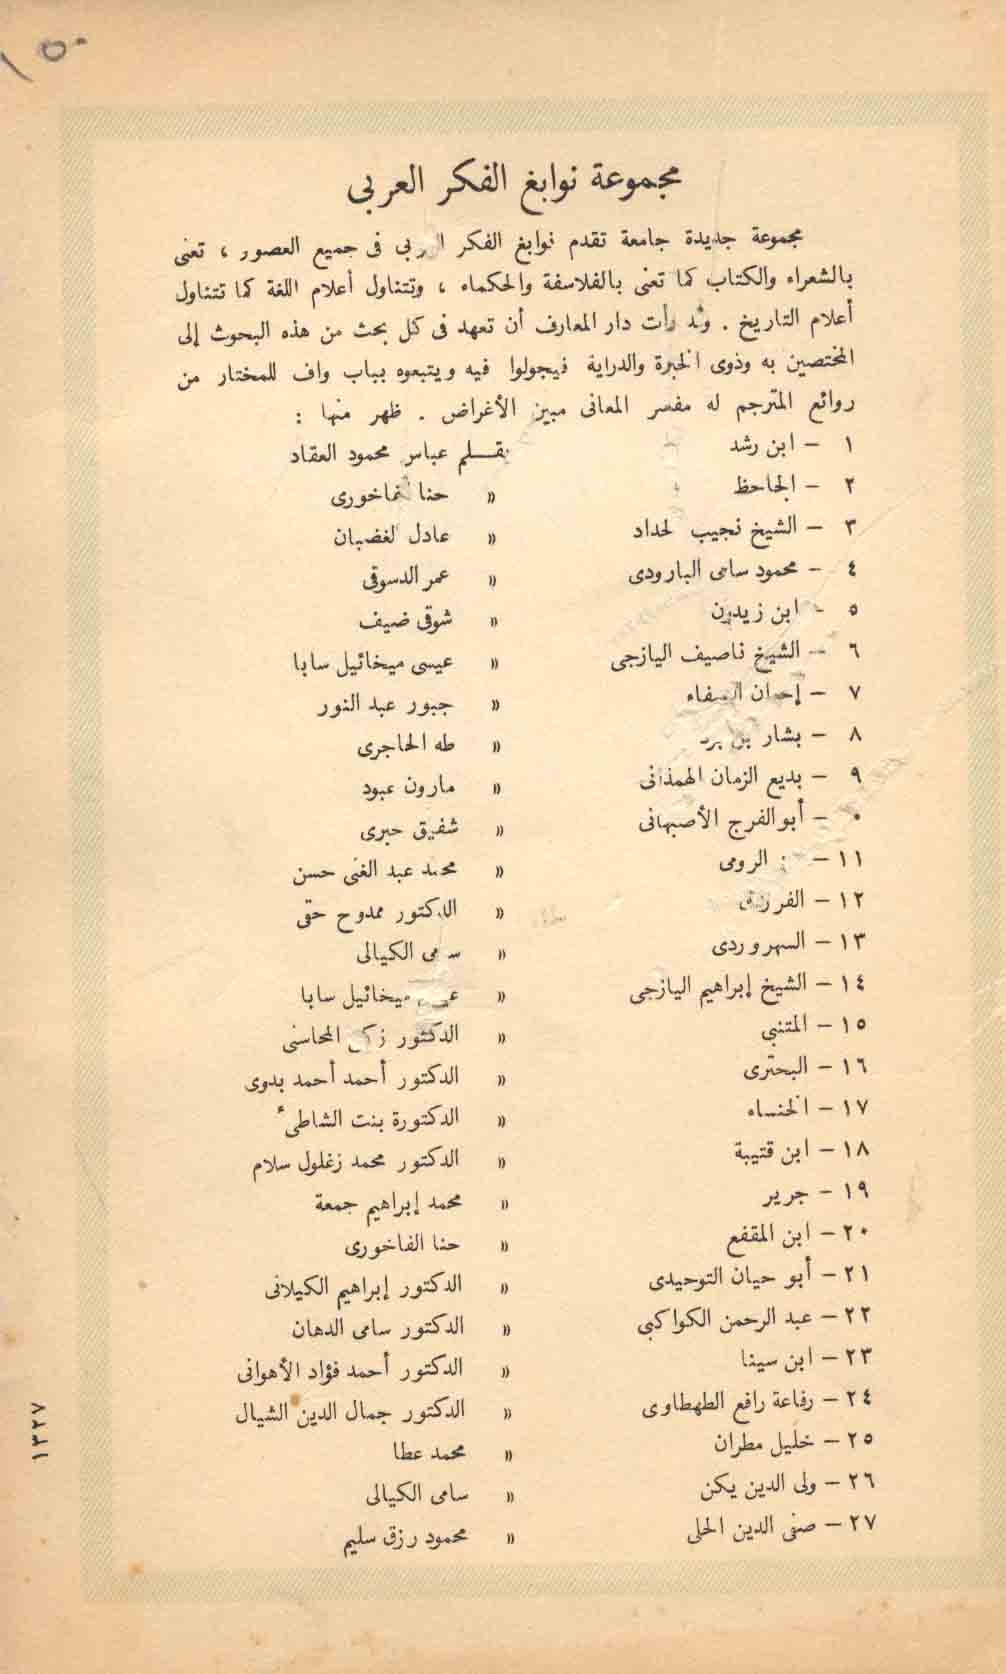 ١٥٠
مجموعة نوابغ الفكر العربى
مجموعة جديدة جامعة تقدم نوابغ الفكر فى جميع العصور ، تعنى
بالشعراء والكتاب كما تعنى بالفلاسفة والحكماء ، وتتناول أعلام اللغة كما تتناول
أعلام التاريخ . دار المعارف أن تعهد فى كل بحث من هذه البحوث إلى
المختصين به وذوى الخبرة والدراية فيجولوا فيه ويتبعوه بباب واف للمختار من
روائع المترجم له مفسر المعانى مبين الأغراض . ظهر منها :
١ – ابن رشد بقلم عباس محمود العقاد
٢ – الجاحظ » حنا الفاخورى
٣ – الشيخ نجيب الحداد » عادل الغضبان
٤ – محمود سامى البارودى » عمر الدسوقى
٥ – ابن زيدون » شوقى ضيف
٦ – الشيخ ناصيف اليازجى » عيسى ميخائيل سابا
٧ – إخوان الصفاء » جبور عبد النور
٨ – بشار بن برد » طه الحاجرى
٩ – بديع الزمان الهمذانى » مارون عبود
٠ – أبو الفرج الأصبهانى » شفيق جبرى
١١ – الرومى » محمد عبد الغنى حسن
١٢ – الفرزدق » الدكتور ممدوح حقى
١٣ – السهروردى » سامى الكيالى
١٤ – الشيخ إبراهيم اليازجى » ميخائيل سابا
١٥ – المتنبى » الدكتور زكى المحاسنى
١٦ – البحترى » الدكتور أحمد أحمد بدوى
١٧ – الخنساء » الدكتورة بنت الشاطئ
١٨ – ابن قتيبة » الدكتور محمد زغلول سلام
١٩ – جرير » محمد إبراهيم جمعة
٢٠ – ابن المقفع » حنا الفاخورى
٢١ – أبو حيان التوحيدى » الدكتور إبراهيم الكيلانى
٢٢ – عبد الرحمن الكواكبى » الدكتور سامى الدهان
٢٣ – ابن سينا » الدكتور أحمد فؤاد الأهوانى
٢٤ – رفاعة رافع الطهطاوى » الدكتور جمال الدين الشيال
٢٥ – خليل مطران » محمد عطا
٢٦ – ولى الدين يكن » سامى الكيالى
٢٧ – صفى الدين الحلى » محمود رزق سليم
١٣٢٧